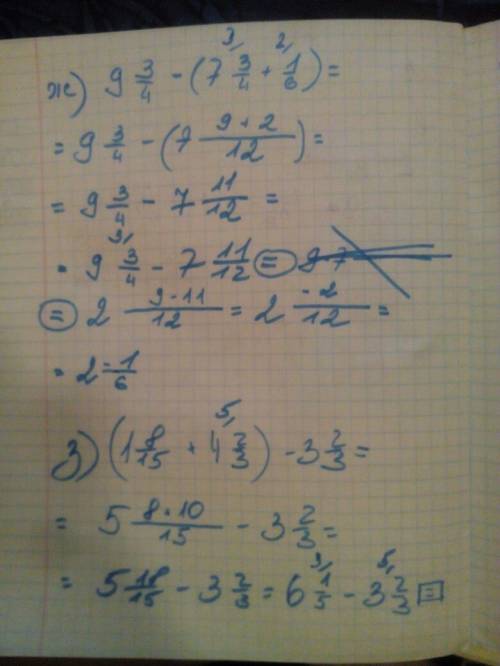 ж) 9 3/4 - (7 3/4 + 1/6) =
= 9 3/4 - (7 (9+2)/12) =
= 9 3/4 - 7 11/12 =
= 9 3/4 - 7 11/12 =
= 2 (9-11)/12 = 2 (-2)/12 =
= 2 -1/6
з) (1 8/15 + 4 2/3) - 3 2/3 =
= 5 (8+10)/15 - 3 2/3 =
= 5 18/15 - 3 2/3 = 6 1/5 - 3 2/3 =